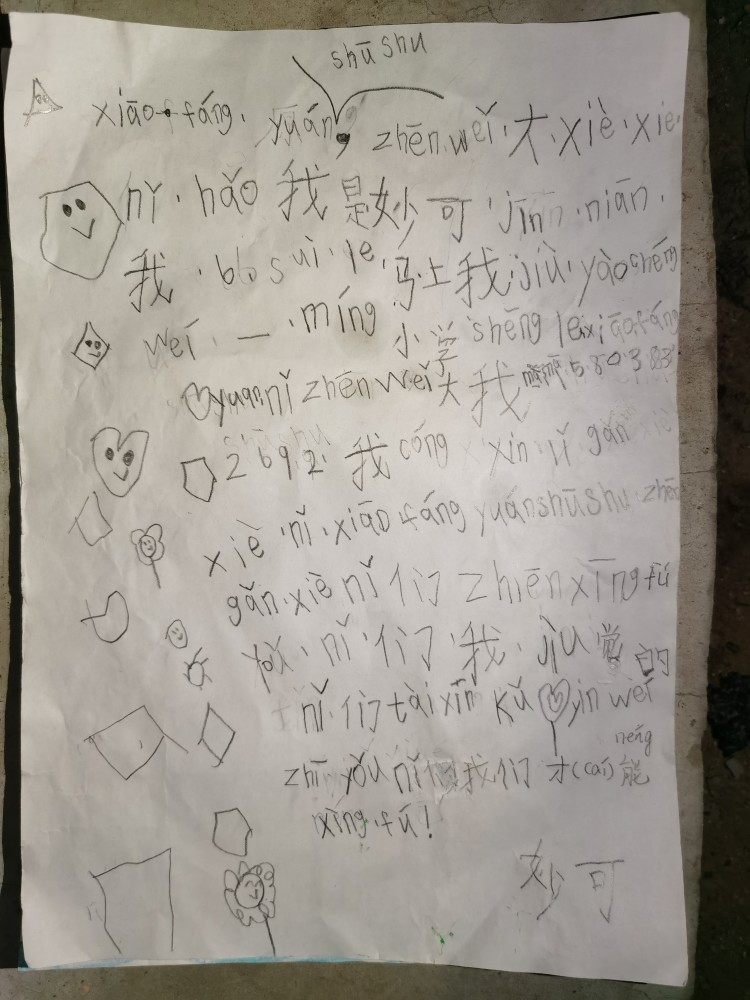 shūshu
xiāo fáng yuán zhēn weǐ 大 xiè xie
nǐ hǎo 我是妙可 jīn niān
我 b suì le 马上我 jiù yào chéng
weí 一 míng 小学 shēng le xiāo fáng
yuan nǐ zhēn weǐ 大 我 5 8 0 3 83
2 6 9 2 我 cóng xin lǐ gǎn
xiè nǐ xiāo fáng yuán shū shu zhēn
gǎn xiè nǐ 们 zhēn xīng fú
yoǔ nǐ 们 我 jiù 觉 的
nǐ 们 tài xīn kǔ yīn weǐ
neńg
zhǐ yǒu nǐ 我们 才(cái) 能
xìng fú!
妙可